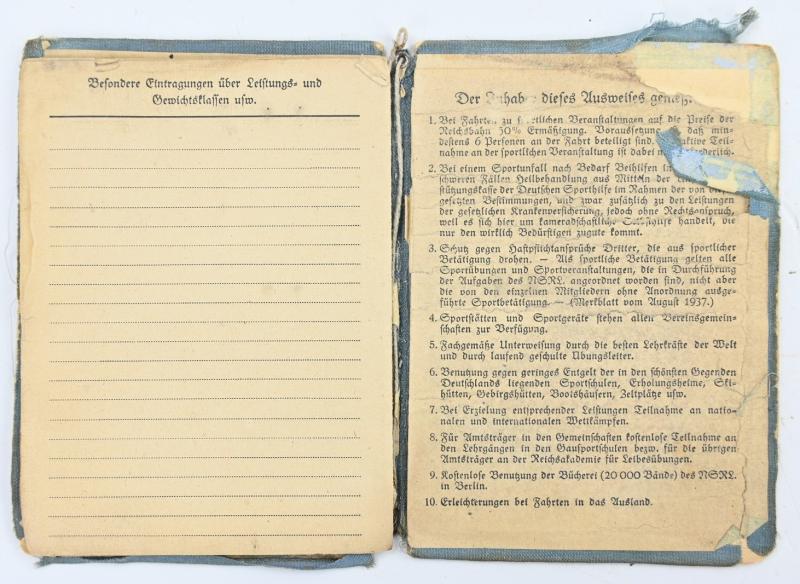 Besondere Eintragungen über Leistungs- und
Gewichtsklassen usw.
Der Inhaber dieses Ausweises genießt:
1. Bei Fahrten zu sportlichen Veranstaltungen auf die Preise der
Reichsbahn 50% Ermäßigung. Voraussetzung daß min-
destens 6 Personen an der Fahrt beteiligt sind. aktive Teil-
nahme an der sportlichen Veranstaltung ist dabei erforderlich.
2. Bei einem Sportunfall nach Bedarf Beihilfen in
schweren Fällen Heilbehandlung aus Mitteln der
stützungskasse der Deutschen Sporthilfe im Rahmen der von
gesetzten Bestimmungen, und zwar zusätzlich zu den Leistungen
der gesetzlichen Krankenversicherung, jedoch ohne Rechtsanspruch,
weil es sich hier um kameradschaftliche Selbsthilfe handelt, die
nur den wirklich Bedürftigen zugute kommt.
3. Schutz gegen Haftpflichtansprüche Dritter, die aus sportlicher
Betätigung drohen. — Als sportliche Betätigung gelten alle
Sportübungen und Sportveranstaltungen, die in Durchführung
der Aufgaben des NSRL. angeordnet worden sind, nicht aber
die von den einzelnen Mitgliedern ohne Anordnung ausge-
führte Sportbetätigung. — (Merkblatt vom August 1937.)
4. Sportstätten und Sportgeräte stehen allen Vereinsgemein-
schaften zur Verfügung.
5. Fachgemäße Unterweisung durch die besten Lehrkräfte der Welt
und durch laufend geschulte Übungsleiter.
6. Benutzung gegen geringes Entgelt der in den schönsten Gegenden
Deutschlands liegenden Sportschulen, Erholungsheime, Ski-
hütten, Gebirgshütten, Bootshäusern, Zeltplätze usw.
7. Bei Erzielung entsprechender Leistungen Teilnahme an natio-
nalen und internationalen Wettkämpfen.
8. Für Amtsträger in den Gemeinschaften kostenlose Teilnahme an
den Lehrgängen in den Gausportschulen bezw. für die übrigen
Amtsträger an der Reichsakademie für Leibesübungen.
9. Kostenlose Benutzung der Bücherei (20 000 Bände) des NSRL.
in Berlin.
10. Erleichterungen bei Fahrten in das Ausland.